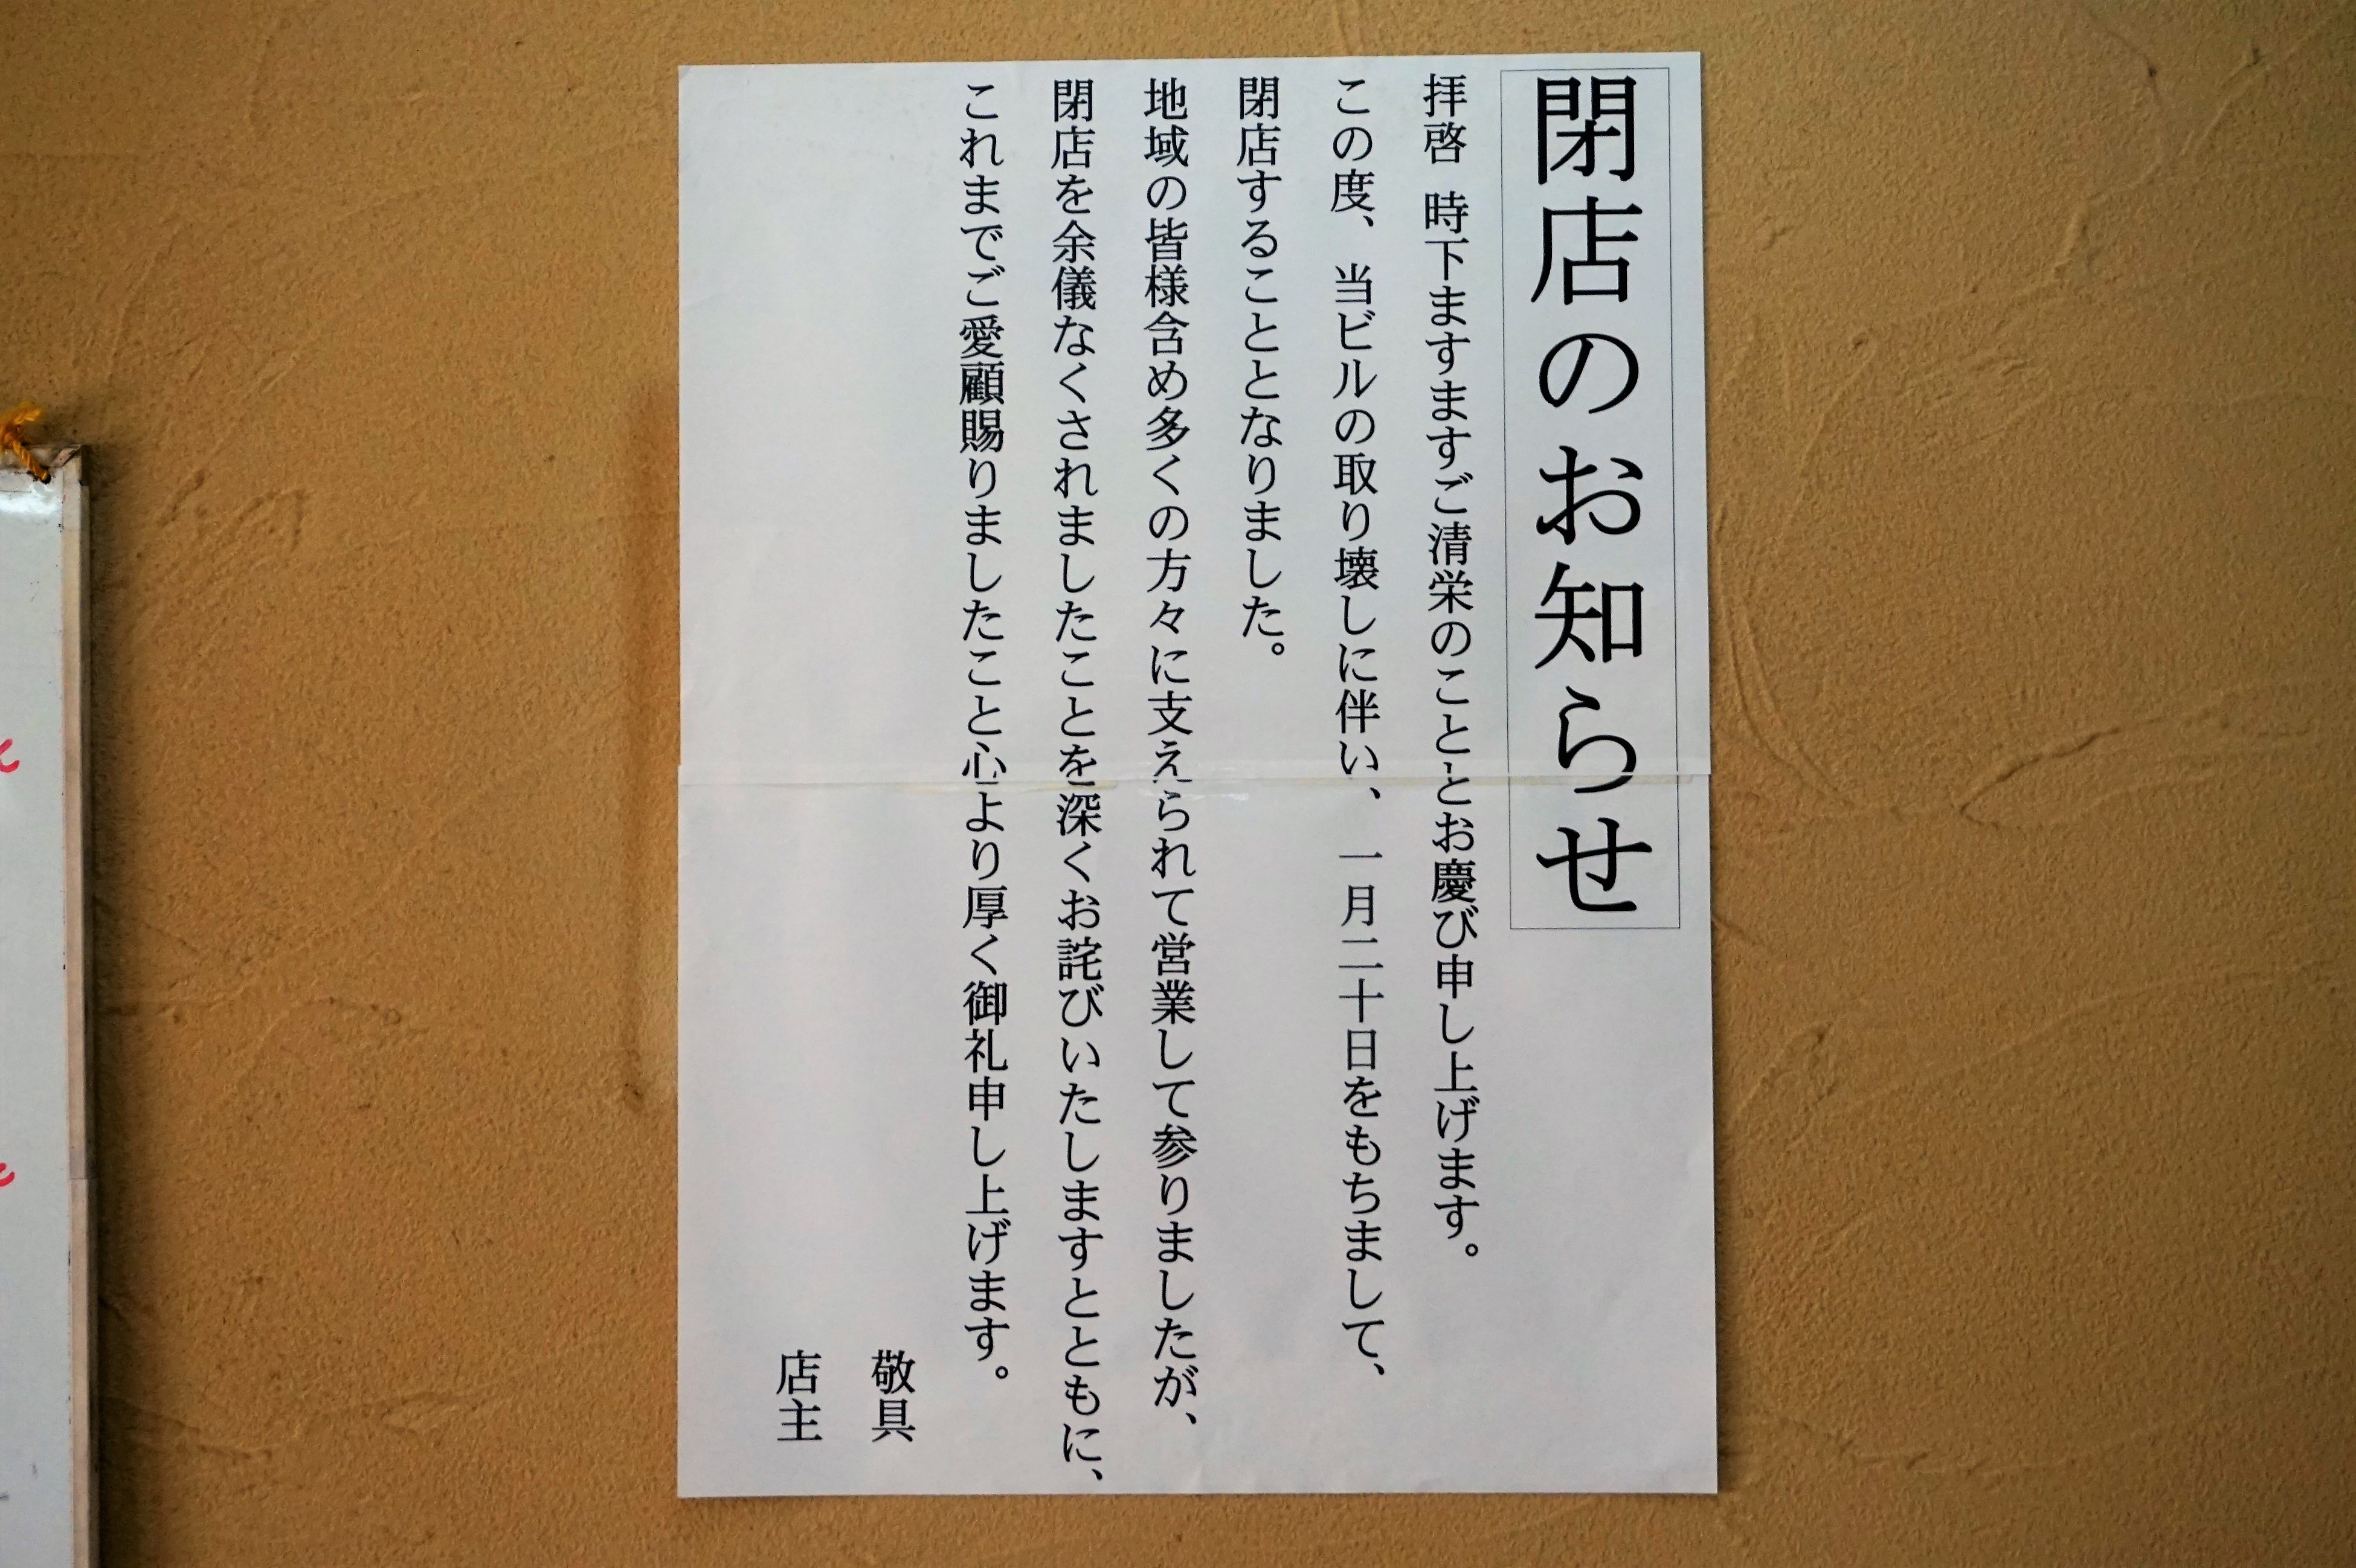 閉店のお知らせ
拝啓 時下ますますご清栄のこととお慶び申し上げます。
この度、当ビルの取り壊しに伴い、一月二十日をもちまして、
閉店することとなりました。
地域の皆様含め多くの方々に支えられて営業して参りましたが、
閉店を余儀なくされましたことを深くお詫びいたしますとともに、
これまでご愛顧賜りましたこと心より厚く御礼申し上げます。
敬具
店主